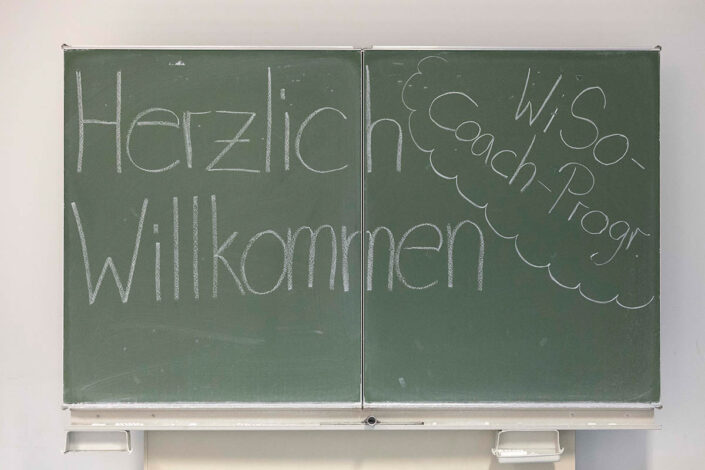 Herzlich
Willkommen
WiSo-
Coach-Progr.